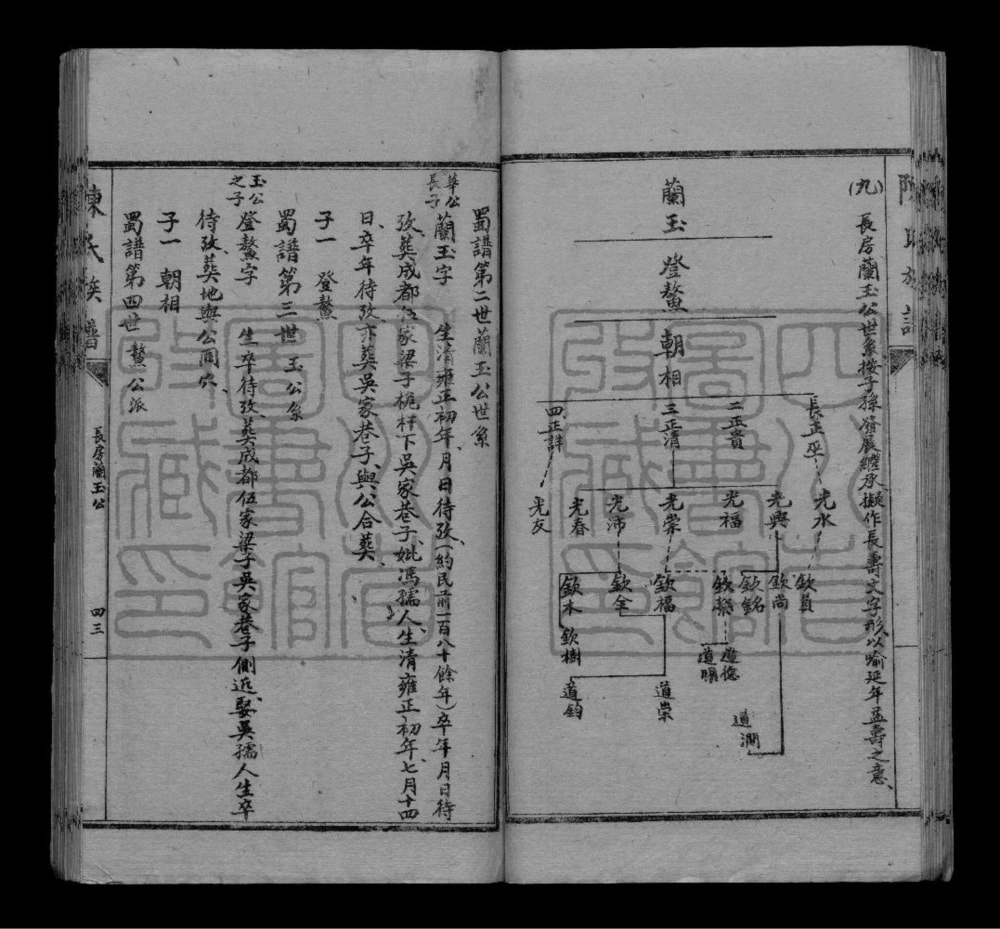 陳氏族譜
(九) 長房蘭玉公世系按子孫發展繼承擬作長壽文字形以喻延年益壽之意、
蘭玉
登鰲
朝相
長正巫
二正貴
三正清
四正諱
光水
光興
光福
光榮
光沛
光春
光友
欽尚
欽銘
欽福
欽全
欽木
欽樹
道德
道順
道澗
道榮
道鈞
四川省圖書館收藏印
蜀譜第二世蘭玉公世系
華公長子
蘭玉字 生清雍正初年、月日待攷、(約民前一百八十餘年)卒年月日待
攷、葬成都伍家梁子桅杆下吳家巷子、妣馮孺人、生清雍正初年、七月十四
日、卒年待攷亦葬吳家巷子、與公合葬、
子一 登鰲
蜀譜第三世 玉公系
玉公之子
登鰲字 生卒待攷葬成都伍家梁子吳家巷子側近、娶吳孺人生卒
待攷、葬地與公同穴、
子一 朝相
蜀譜第四世 鰲公派
陳氏族譜
長房蘭玉公
四三